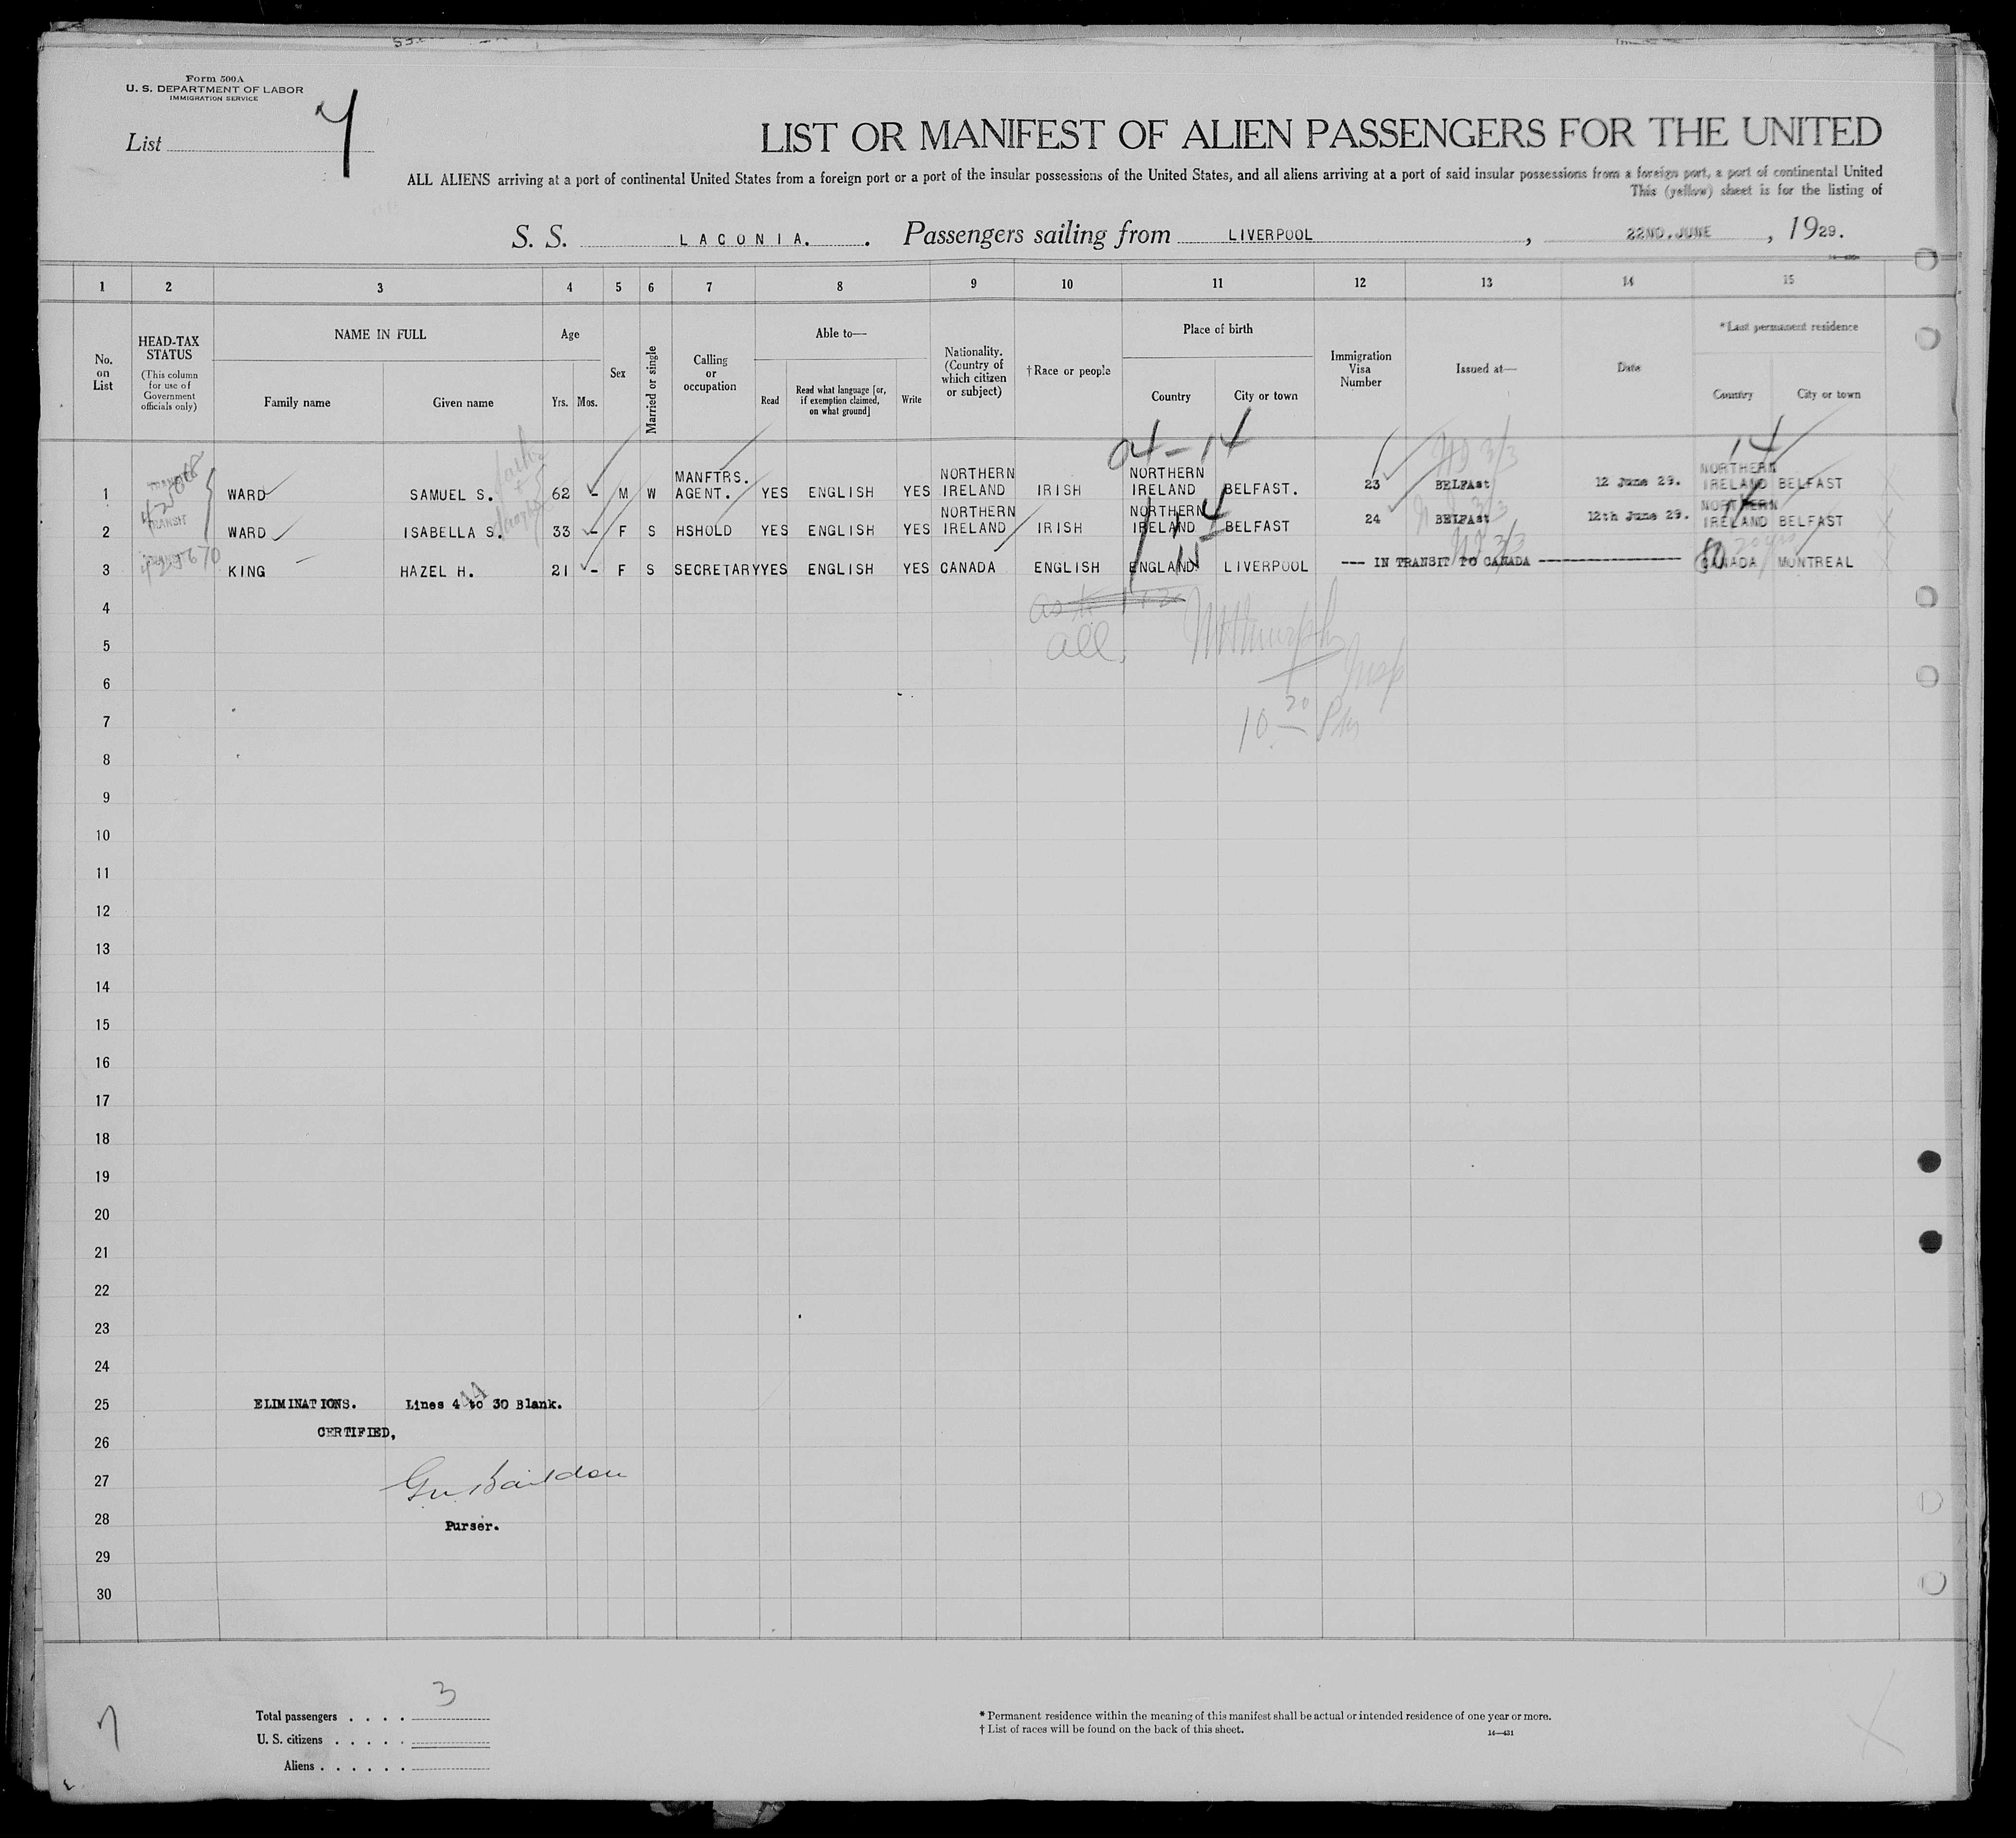 Form 500A
U. S. DEPARTMENT OF LABOR
IMMIGRATION SERVICE
List 7
LIST OR MANIFEST OF ALIEN PASSENGERS FOR THE UNITED
ALL ALIENS arriving at a port of continental United States from a foreign port or a port of the insular possessions of the United States, and all aliens arriving at a port of said insular possessions from a foreign port, a port of continental United
This (yellow) sheet is for the listing of
S. S. LACONIA. . Passengers sailing from LIVERPOOL , 22ND.JUNE , 1929.
1 2 3 4 5 6 7 8 9 10 11 12 13 14 15
No. on List
HEAD-TAX STATUS (This column for use of Government officials only)
NAME IN FULL Family name Given name
Age Yrs. Mos.
Sex
Married or single
Calling or occupation
Able to— Read Read what language [or, if exemption claimed, on what ground] Write
Nationality. (Country of which citizen or subject)
†Race or people
Place of birth Country City or town
Immigration Visa Number
Issued at—
Date
*Last permanent residence Country City or town
04-14 14
1 TRANSIT WARD SAMUEL S. 62 - M W MANFTRS. AGENT. YES ENGLISH YES NORTHERN IRELAND IRISH NORTHERN IRELAND BELFAST. 23 BELFAst 12 June 29. NORTHERN IRELAND BELFAST
2 TRANSIT WARD ISABELLA S. 33 - F S HSHOLD YES ENGLISH YES NORTHERN IRELAND IRISH NORTHERN IRELAND BELFAST 24 BELFAst 12th June 29. NORTHERN IRELAND BELFAST
3 KING HAZEL H. 21 - F S SECRETARY YES ENGLISH YES CANADA ENGLISH ENGLAND LIVERPOOL --- IN TRANSIT TO CANADA --- CANADA MONTREAL
4
5 all.
6
7 10 30 Pm
8
9
10
11
12
13
14
15
16
17
18
19
20
21
22
23
24
25 ELIMINATIONS. Lines 4 to 30 Blank.
26 CERTIFIED,
27
28 Purser.
29
30
7
Total passengers . . . . 3
U. S. citizens . . . . .
Aliens . . . . . .
* Permanent residence within the meaning of this manifest shall be actual or intended residence of one year or more.
† List of races will be found on the back of this sheet.
14—431